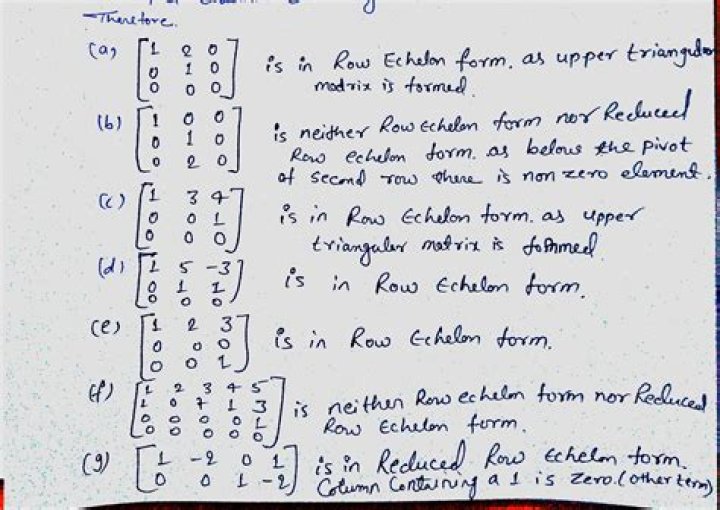 Therefore.
(a) [1 2 0
0 1 0
0 0 0] is in Row Echelon form. as upper triangular
matrix is formed.
(b) [1 0 0
0 1 0
0 2 0] is neither Row Echelon form nor Reduced
Row echelon form. as below the pivot
of second row there is non zero element.
(c) [1 3 4
0 0 1
0 0 0] is in Row Echelon form. as upper
triangular matrix is formed
(d) [1 5 -3
0 1 1
0 0 0] is in Row Echelon form.
(e) [1 2 3
0 0 0
0 0 1] is in Row Echelon form.
(f) [1 2 3 4 5
1 0 7 1 3
0 0 0 0 1
0 0 0 0 0] is neither Row echelon form nor Reduced
Row Echelon form.
(g) [1 -2 0 1
0 0 1 -2] is in Reduced Row Echelon form.
Column Containing a 1 is zero. (other term)